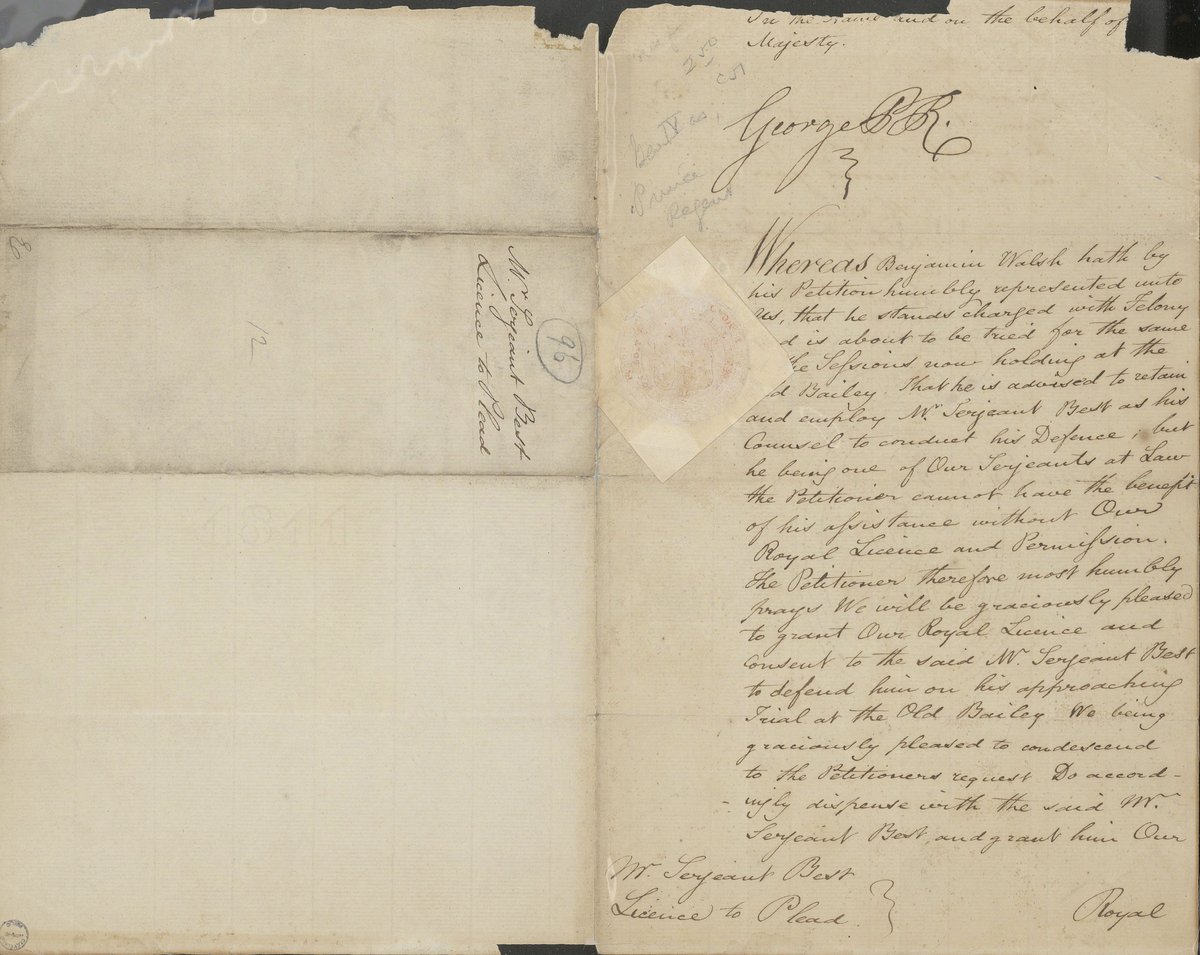 Mr. Serjeant Best
Licence to Plead
96
12
In the Name and on the behalf of
Majesty.
250
Geo IV as,
Prince
Regent
George P R.
Whereas Benjamin Walsh hath by
his Petition humbly represented unto
Us, that he stands charged with Felony
d is about to be tried for the same
the Sessions now holding at the
d Bailey. That he is advised to retain
and employ Mr. Serjeant Best as his
Counsel to conduct his Defence; but
he being one of Our Serjeants at Law
the Petitioner cannot have the benefit
of his assistance without Our
Royal Licence and Permission.
The Petitioner therefore most humbly
prays We will be graciously pleased
to grant Our Royal Licence and
Consent to the said Mr. Serjeant Best
to defend him on his approaching
Trial at the Old Bailey We being
graciously pleased to condescend
to the Petitioners request Do accord-
-ingly dispense with the said Mr.
Serjeant Best, and grant him Our
Mr. Serjeant Best
Licence to Plead.
Royal